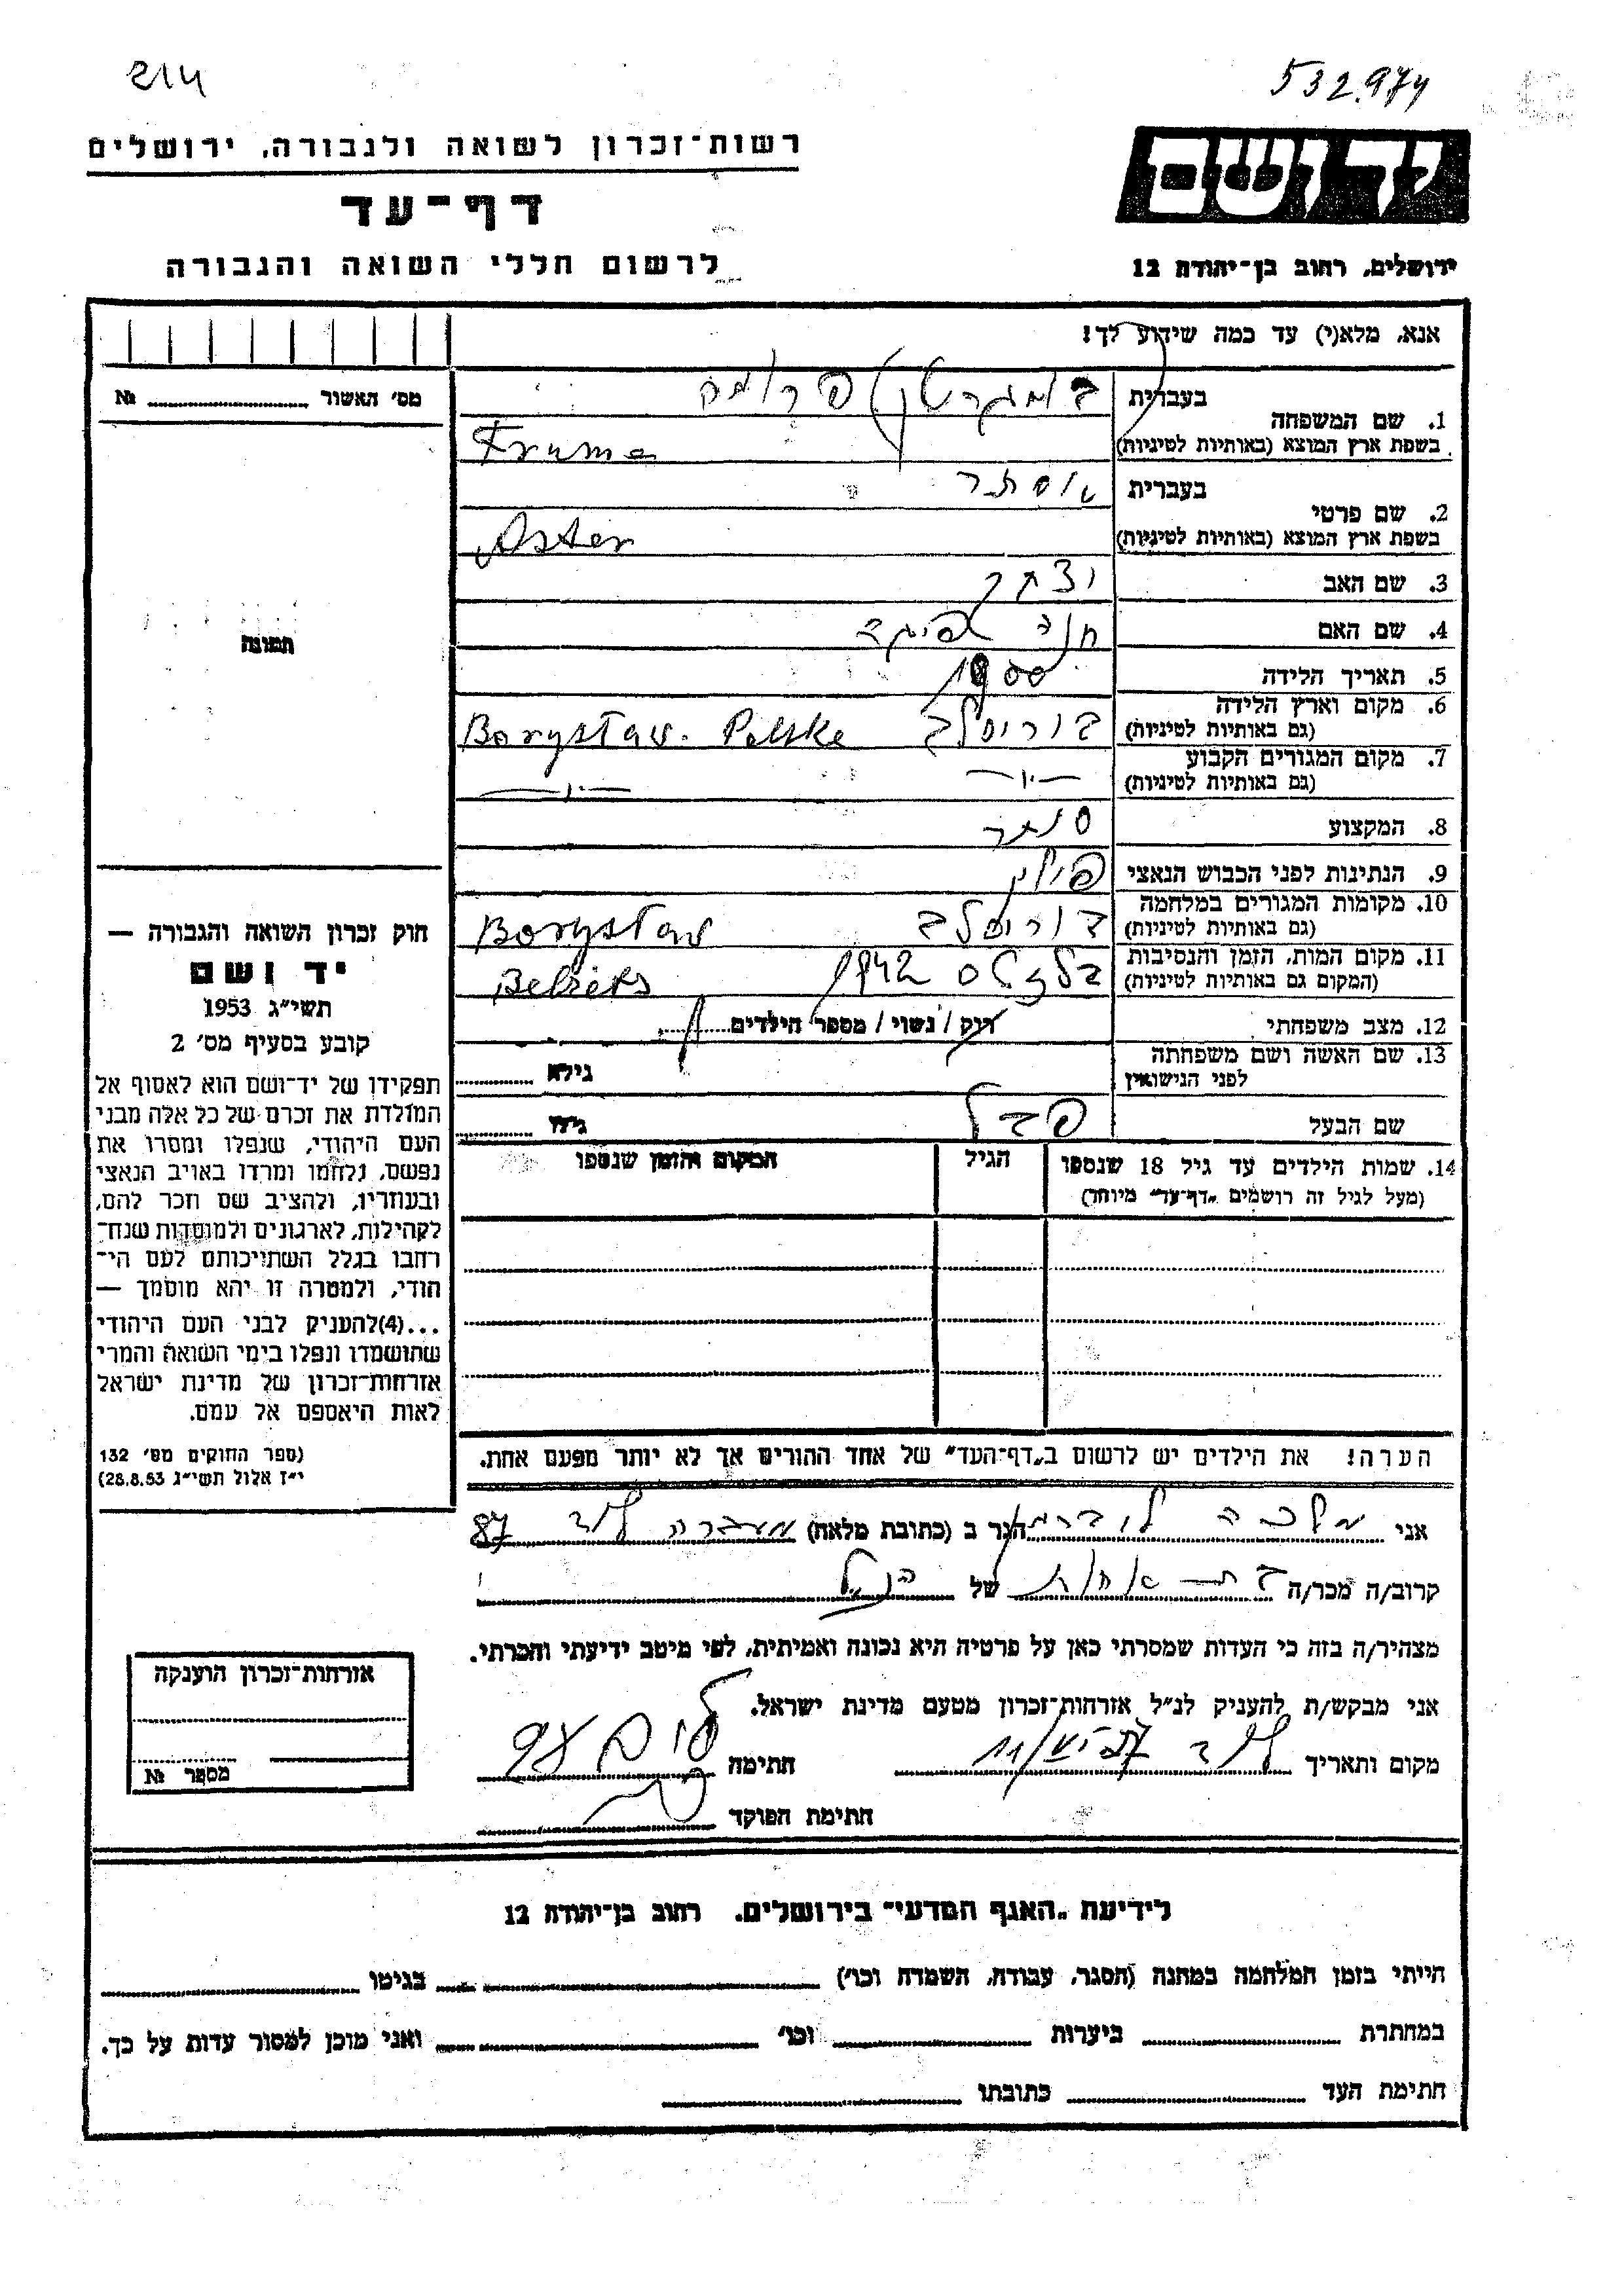 214
532.974
יד ושם
רשות־זכרון לשואה ולגבורה, ירושלים
דף־עד
לרשום חללי השואה והגבורה
ירושלים, רחוב בן־יהודה 12
אנא, מלא(י) עד כמה שידוע לך!
מס׳ האשור № 
1. שם המשפחה בעברית פרומה
בשפת ארץ המוצא (באותיות לטיניות) Fruma
2. שם פרטי בעברית אסתר
בשפת ארץ המוצא (באותיות לטיניות) Aster
3. שם האב
4. שם האם חנה
5. תאריך הלידה 1900
6. מקום וארץ הלידה (גם באותיות לטיניות) בוריסלב Borystaw. Polske
7. מקום המגורים הקבוע (גם באותיות לטיניות) —״— —״—
8. המקצוע סוחר
9. הנתינות לפני הכבוש הנאצי פולין
10. מקומות המגורים במלחמה (גם באותיות לטיניות) בוריסלב Borystaw
11. מקום המות, הזמן והנסיבות (המקום גם באותיות לטיניות) בלזלס 1942 Belzets
12. מצב משפחתי רוק / נשוי / מספר הילדים
13. שם האשה ושם משפחתה לפני הנישואין גילה
שם הבעל גילו
14. שמות הילדים עד גיל 18 שנספו (מעל לגיל זה רושמים „דף־עד״ מיוחד) הגיל המקום והזמן שנספו
תמונה
חוק זכרון השואה והגבורה —
יד ושם
תשי״ג 1953
קובע בסעיף מס׳ 2
תפקידו של יד־ושם הוא לאסוף אל
המולדת את זכרם של כל אלה מבני
העם היהודי, שנפלו ומסרו את
נפשם, נלחמו ומרדו באויב הנאצי
ובעוזריו, ולהציב שם וזכר להם,
לקהילות, לארגונים ולמוסדות שנח־
רבו בגלל השתייכותם לעם הי־
הודי, ולמטרה זו יהא מוסמך —
...(4)להעניק לבני העם היהודי
שהושמדו ונפלו בימי השואה והמרי
אזרחות־זכרון של מדינת ישראל
לאות היאספם אל עמם.
(ספר החוקים מס׳ 132
י״ז אלול תשי״ג 28.8.53)
הערה! את הילדים יש לרשום ב„דף־העד״ של אחד ההורים אך לא יותר מפעם אחת.
אני מלכה הגר ב (כתובת מלאה) מעברה לוד 87
קרוב/ה מכר/ה בת אחות של הנ״ל
מצהיר/ה בזה כי העדות שמסרתי כאן על פרטיה היא נכונה ואמיתית, לפי מיטב ידיעתי והכרתי.
אני מבקש/ת להעניק לנ״ל אזרחות־זכרון מטעם מדינת ישראל.
מקום ותאריך לוד חתימה
חתימת הפוקד
אזרחות־זכרון הוענקה
מספר №
לידיעת „האגף המדעי״ בירושלים. רחוב בן־יהודה 12
הייתי בזמן המלחמה במחנה (הסגר, עבודה, השמדה וכו׳) בגיטו
במחתרת ביערות וכו׳ ואני מוכן למסור עדות על כך.
חתימת העד כתובתו